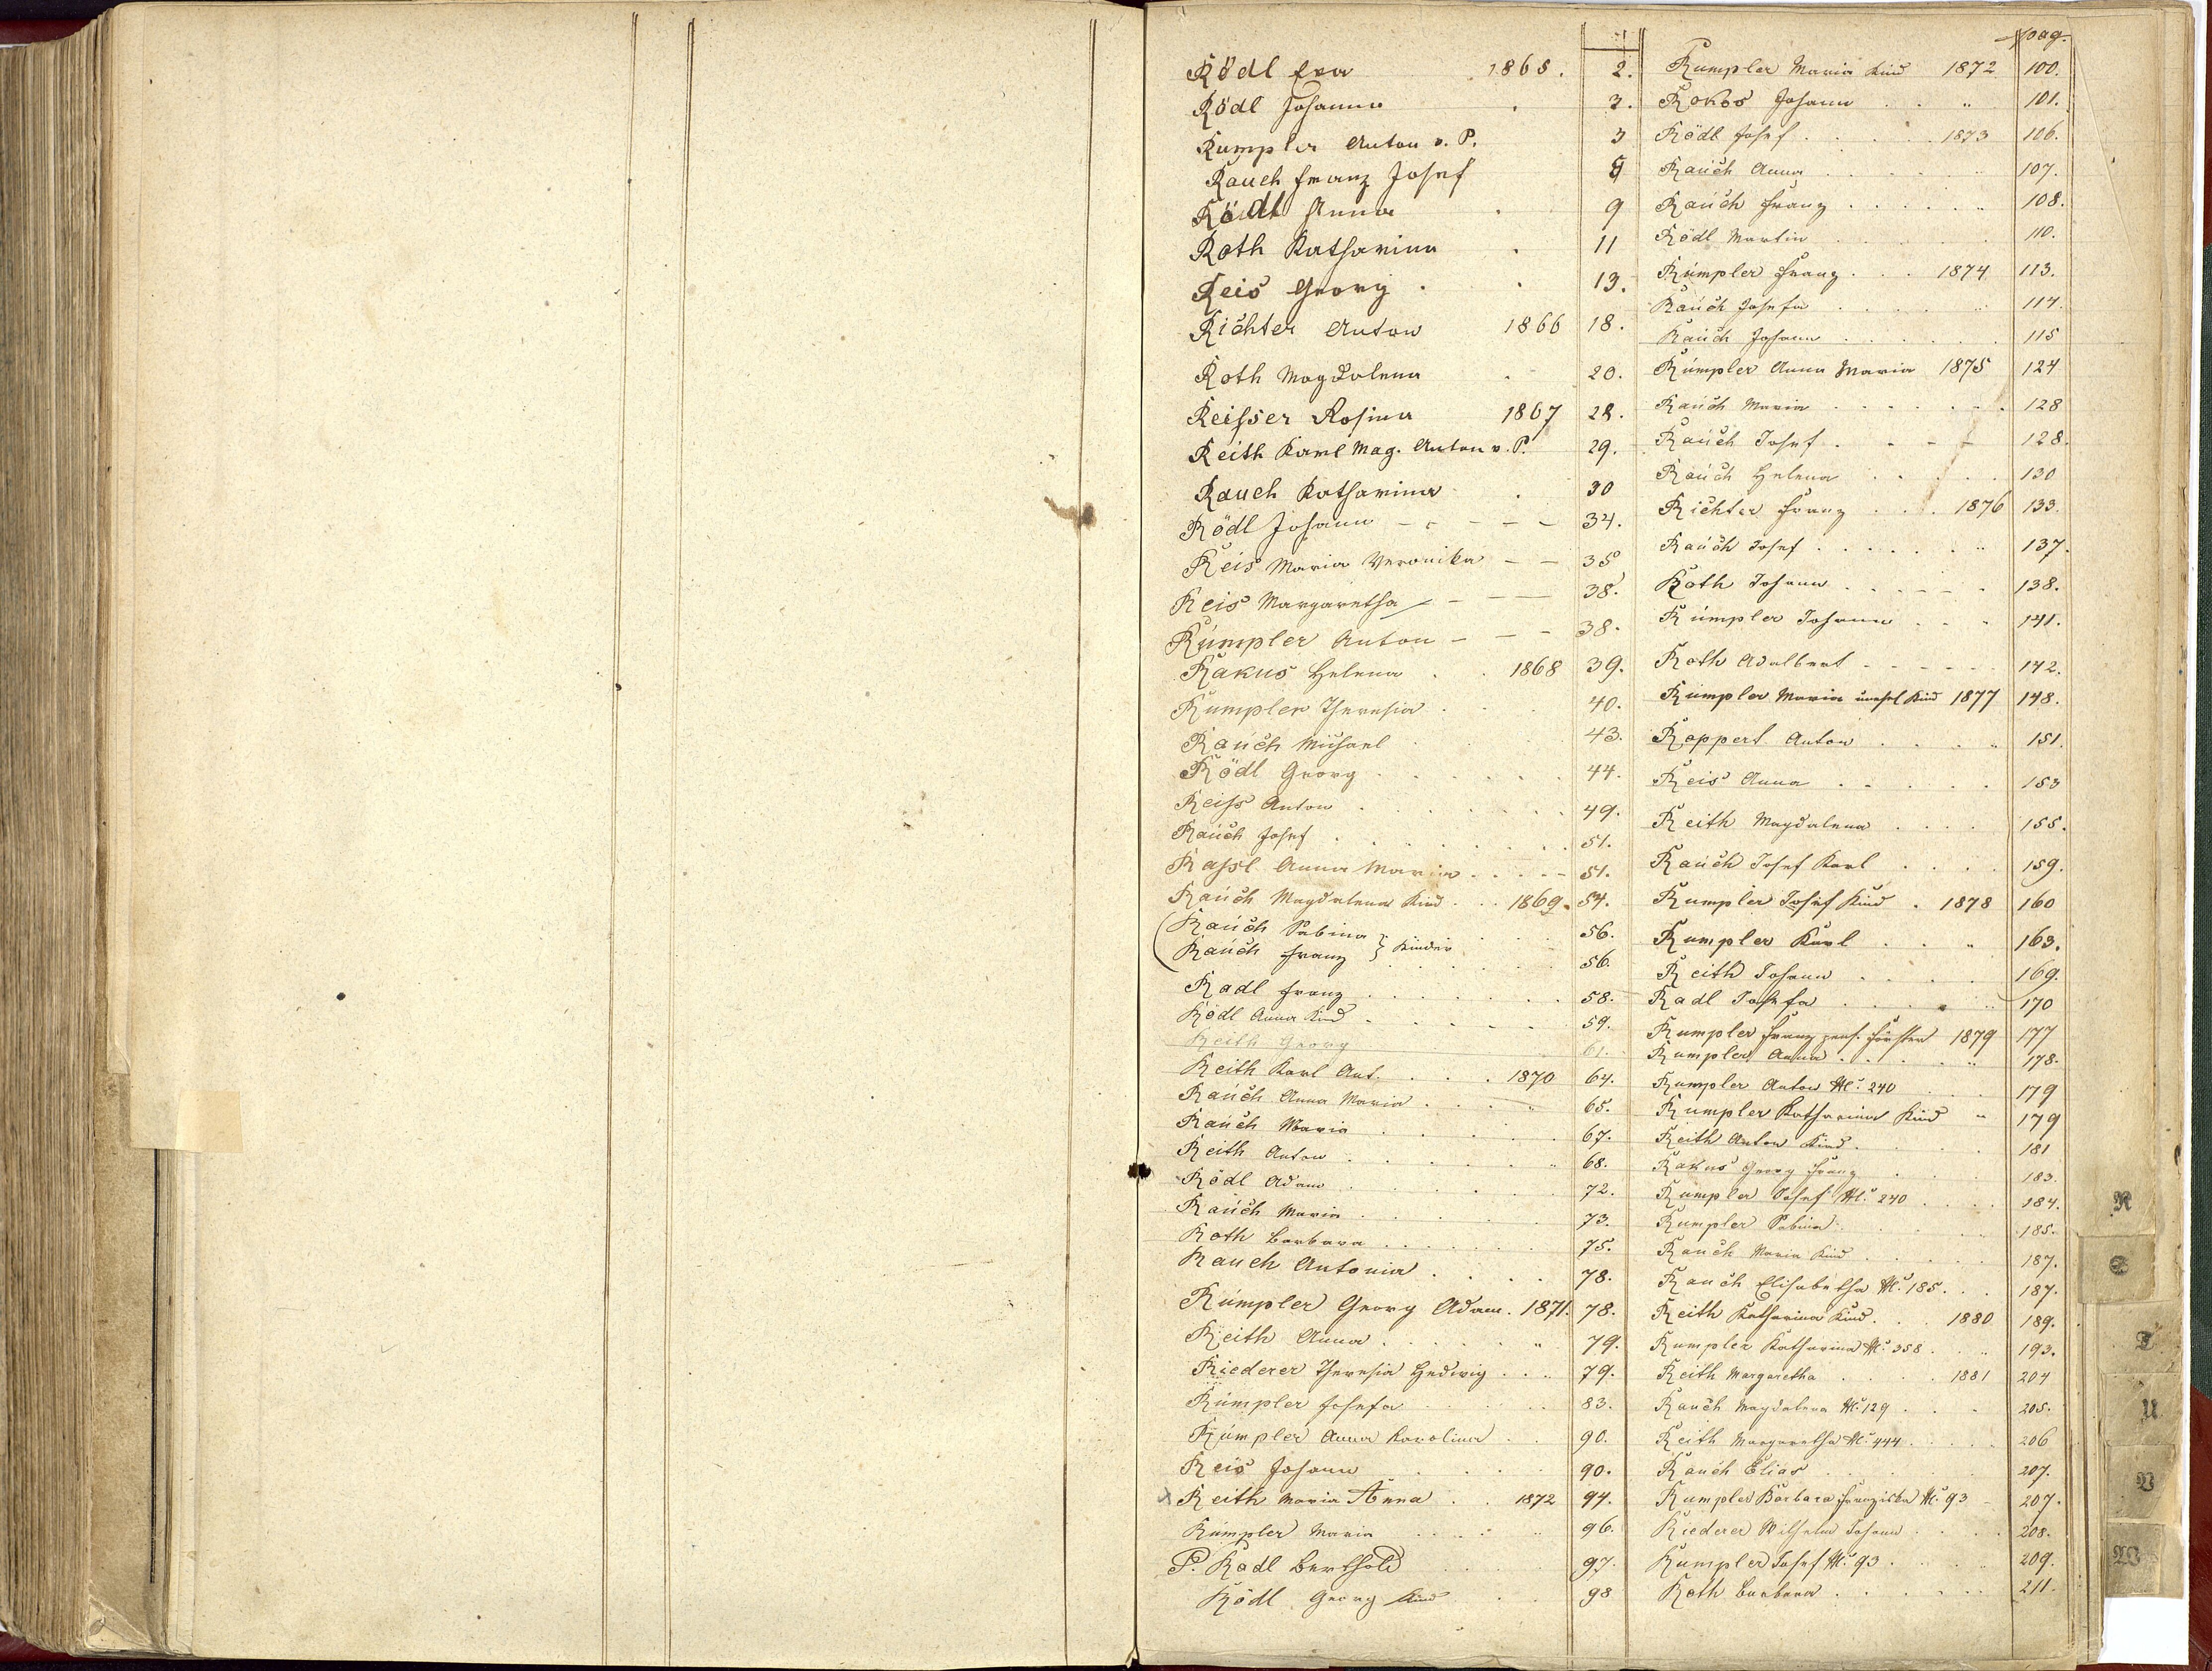 Rödl Eva 1865. 2.
Rödl Johanna . 3.
Rumpler Anton v. P. 3
Rauch Franz Josef 8
Rödl Anna . 9
Roth Katharina . 11
Reis Georg . . 13.
Richter Anton 1866 18.
Roth Magdalena . 20.
Reisser Rosina 1867 28.
Reith Karl Mag. Anton v. P. 29.
Rauch Katharina . 30
Rödl Johann - - - - - 34.
Reis Maria Veronika - - 35
Reis Margaretha - - - 38.
Rumpler Anton - - - 38.
Rakus Helena . . 1868 39.
Rumpler Theresia . . . 40.
Rauch Michael . 43.
Rödl Georg . . . . . . 44.
Reiss Anton . . . . . . 49.
Rauch Josef . . . . . . . . 51.
Rassl Anna Maria . . . . - 51.
Rauch Magdalena Kind . . . 1869. 54.
Rauch Sabina } Kinder . . . 56.
Rauch Franz . . . . . 56.
Radl Franz . . . . . . . 58.
Rödl Anna Kind . . . . . . 59.
Reith Georg 61.
Reith Karl Ant. . . . 1870 64.
Rauch Anna Maria . . . . „ 65.
Rauch Maria . . . . . . 67.
Reith Anton . . . . . „ 68.
Rödl Adam . . . . . . 72.
Rauch Maria . . . . . . 73.
Roth Barbara . . . . . . . 75.
Rauch Antonia . . . . 78.
Rumpler Georg Adam . 1871. 78.
Reith Anna . . . . . . „ 79.
Riederer Theresia Hedwig . . „ 79.
Rumpler Josefa . . . . . . 83.
Rumpler Anna Karolina . . 90.
Reis Johann . . . . . 90.
x Reith Maria Anna . . 1872 94.
Rumpler Maria . . . . „ 96.
P. Radl Berthold . . . . 97.
Rödl Georg Kind . . . 98
pag.
Rumpler Maria Kind 1872 100.
Rokos Johann . . „ 101.
Rödl Josef . . . . . 1873 106.
Rauch Anna . . . . . „ 107.
Rauch Franz . . . . . „ 108.
Rödl Martin . . . . . . 110.
Rumpler Franz . . . 1874 113.
Rauch Josefa . . . . „ 114.
Rauch Johann . . . . . . 115
Rumpler Anna Maria 1875 124
Rauch Maria . . . . . . 128
Rauch Josef . . - - - 128.
Rauch Helena . . . . . 130
Richter Franz . . . 1876 133.
Rauch Josef . . . . . . „ 137.
Roth Johann . . . . . . . 138.
Rumpler Johann . . . 141.
Roth Adalbert - - - - - - 142.
Rumpler Maria unehel Kind 1877 148.
Roppert Anton . . . . „ 151.
Reis Anna . . . . . 153
Reith Magdalena . . . . 155.
Rauch Josef Karl . . . . 159.
Rumpler Josef Kind . 1878 160
Rumpler Karl . . . „ 163.
Reith Johann . . . . . 169.
Radl Josefa . . . . . „ 170
Rumpler Franz pens. Förster 1879 177
Rumpler Anna . . . . . „ 178.
Rumpler Anton №. 240 . . 179
Rumpler Katharina Kind „ 179
Reith Anton Kind . . . . . 181
Rakus Georg Franz . . . . 183.
Rumpler Josef №. 240 . . . . 184.
Rumpler Sabina . . . . . . 185.
Rauch Maria Kind . . . . . 187.
Rauch Elisabetha №. 185 . . . 187.
Reith Katharina Kind . . . 1880 189.
Rumpler Katharina №. 358 . . „ 193.
Reith Margaretha . . . . 1881 204
Rauch Magdalena №. 129 . . . 205.
Reith Margaretha №. 444 . . . . . 206
Rauch Elias . . . 207.
Rumpler Barbara Franziska №. 93 - 207.
Riederer Wilhelm Johann . . . . 208.
Rumpler Josef №. 93 . . . . 209.
Roth Barbara . . . . . . 211.
R
S
T
U
V
W